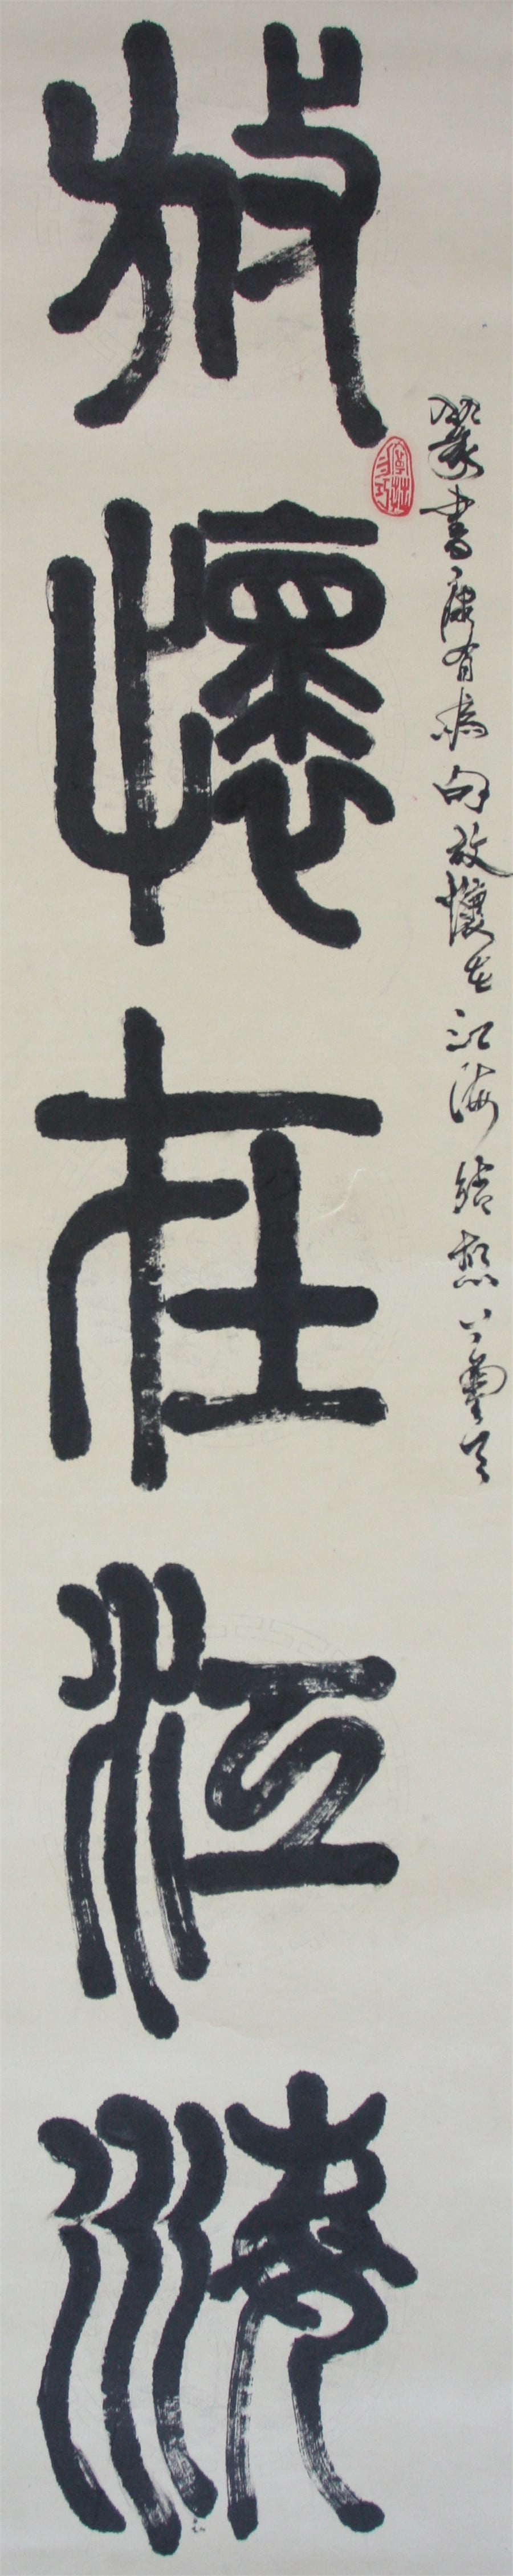 篆書康有為句放懷在江海結想
放懷在江海